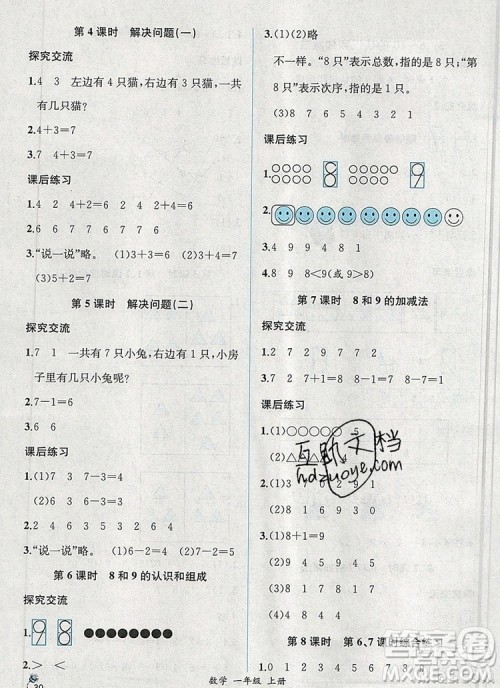 第4课时 解决问题(一)
探究交流
1.4 3 左边有4只猫,右边有3只猫,一共
有几只猫?
2.4+3=7
3.4+3=7
课后练习
1.7 4+2=6 2+4=6
2.6 7 7 7 6 4
3.“说一说”略。 (1)3+4=7
(3)5+2=7
第5课时 解决问题(二)
探究交流
1.7 1 一共有7只小兔,右边有1只,小房
子里有几只小兔呢?
2.7-1=6
课后练习
1.7 3 7-3=4
2.4 6 6 3 7 0
3.“说一说”略。 (1)7-1=6 (2)7-2=5
第6课时 8和9的认识和组成
探究交流
1.9 8
2.> <
3.(1)(2)略
不一样。“8只”表示总数,指的是8只;“第
8只”表示次序,指的是1只。
(3)8 7 6 5 4 3 2 1
课后练习
1.○○○○ ○○○○○ 8 9
○○○○ ○○○○
2.
3.4 9 9 4 8 1
4.8 9 8<9(或9>8)
第7课时 8和9的加减法
探究交流
1.2 7 9 9
2.0 1 2 3 4 5 6 7 8 9
课后练习
1.(1)○○○○○ 5
2.(1)3 7 0 6 2 9 1
(2)8 2 7 1 6 3
3.(1)8 8 8 8 8
(2)9 9 9 9 9
4.(1)5 4 9 4 5 9
(2)1 8 9 8 1 9
第8课时 6、7课时综合练习
1.0 1 2 3 4 7 6 8
数学 一年级 上册
互助文档
hdzuoye.com